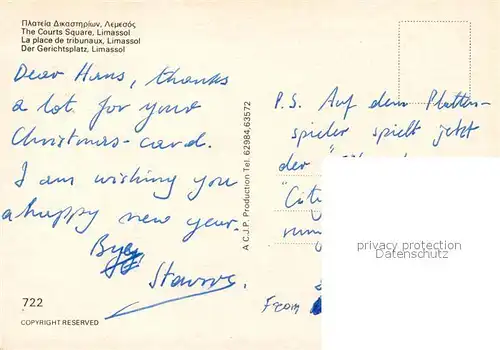 Πλατεία Δικαστηρίων, Λεμεσός
The Courts Square, Limassol
La place de tribunaux, Limassol
Der Gerichtsplatz, Limassol
Dear Hans, thanks
a lot for your
Christmas-card.
I am wishing you
a happy new year.
Bye
Stavros.
722
COPYRIGHT RESERVED
A C.J.P. Production Tel. 62984,63572
P.S. Auf dem Platten-
spieler spielt jetzt
der
From
privacy protection
© ansichtskarten-center.de